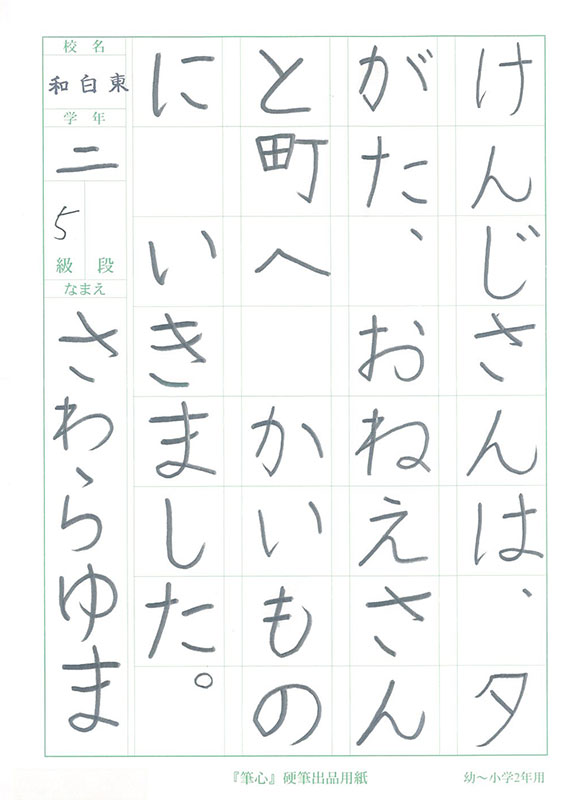 けんじさんは、夕
がた、おねえさん
と町へ　かいもの
に　いきました。
校名
和白東
学年
二
5
級 段
なまえ
さわらゆま
『筆心』硬筆出品用紙
幼〜小学2年用